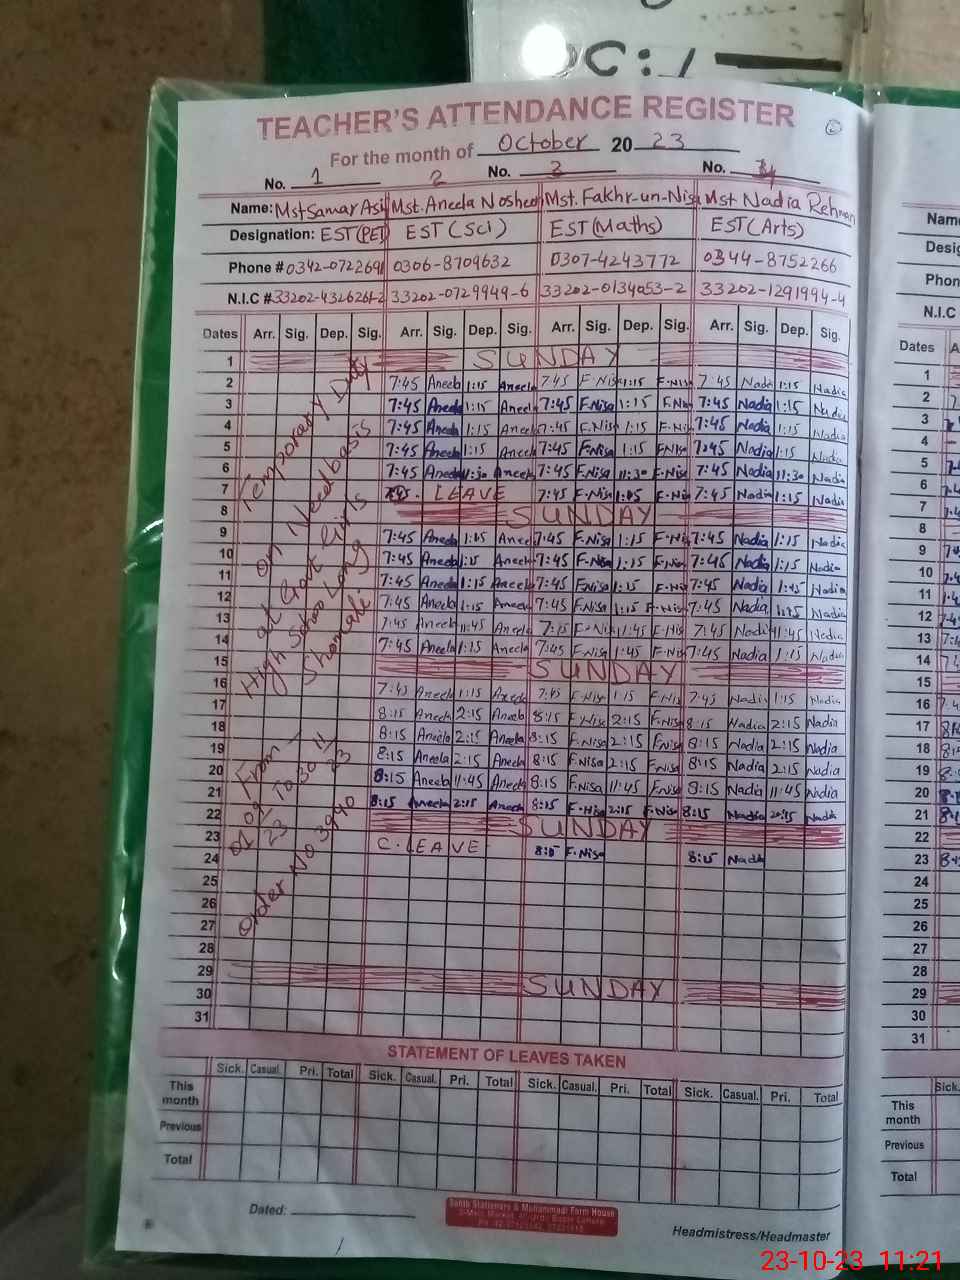 PC:/
TEACHER'S ATTENDANCE REGISTER
For the month of October 2023
No. 1 2 No. 3 No. 4
Name: Mst Samar Asi Mst. Aneela Nosheen Mst. Fakhr-un-Nisa Mst Nadia Rehman
Designation: EST(PET) EST(Sci) EST(Maths) EST(Arts)
Phone # 0342-0722691 0306-8709632 0307-4243772 0344-8752266
N.I.C # 33202-4326261-2 33202-0729949-6 33202-0134053-2 33202-1291994-4
Dates Arr. Sig. Dep. Sig. Arr. Sig. Dep. Sig. Arr. Sig. Dep. Sig. Arr. Sig. Dep. Sig.
1 SUNDAY
2 7:45 Aneela 1:15 Aneela 7:45 F-Nisa 1:15 F-Nisa 7 45 Nadia 1:15 Nadia
3 7:45 Aneela 1:15 Aneela 7:45 F.Nisa 1:15 F.Nisa 7:45 Nadia 1:15 Nadia
4 7:45 Aneela 1:15 Aneela 7:45 F.Nisa 1:15 F-Nisa 7:45 Nadia 1:15 Nadia
5 7:45 Aneela 1:15 Aneela 7:45 F.Nisa 1:15 F.Nisa 7:45 Nadia 1:15 Nadia
6 7:45 Aneela 11:30 Aneela 7:45 F.Nisa 11:30 F-Nisa 7:45 Nadia 11:30 Nadia
7 LEAVE 7:45 F-Nisa 1:15 F-Nisa 7:45 Nadia 1:15 Nadia
8 SUNDAY
9 7:45 Aneela 1:15 Aneela 7:45 F.Nisa 1:15 F-Nisa 7:45 Nadia 1:15 Nadia
10 7:45 Aneela 1:15 Aneela 7:45 F-Nisa 1:15 F.Nisa 7:45 Nadia 1:15 Nadia
11 7:45 Aneela 1:15 Aneela 7:45 F.Nisa 1:15 F-Nisa 7:45 Nadia 1:45 Nadia
12 7:45 Aneela 1:15 Aneela 7:45 F.Nisa 1:15 F-Nisa 7:45 Nadia 1:15 Nadia
13 7:45 Aneela 11:45 Aneela 7:15 F-Nisa 11:45 F-Nisa 7:45 Nadia 11:45 Nadia
14 7:45 Aneela 1:15 Aneela 7:45 F.Nisa 1:45 F-Nisa 7:45 Nadia 1:15 Nadia
15 SUNDAY
16 7:45 Aneela 1:15 Aneela 7:45 F-Nisa 1:15 F-Nisa 7:45 Nadia 1:15 Nadia
17 8:15 Aneela 2:15 Aneela 8:15 F-Nisa 2:15 F.Nisa 8:15 Nadia 2:15 Nadia
18 8:15 Aneela 2:15 Aneela 8:15 F.Nisa 2:15 F.Nisa 8:15 Nadia 2:15 Nadia
19 8:15 Aneela 2:15 Aneela 8:15 F.Nisa 2:15 F.Nisa 8:15 Nadia 2:15 Nadia
20 8:15 Aneela 11:45 Aneela 8:15 F.Nisa 11:45 F.Nisa 8:15 Nadia 11:45 Nadia
21 8:15 Aneela 2:15 Aneela 8:15 F-Nisa 2:15 F.Nisa 8:15 Nadia 2:15 Nadia
22 SUNDAY
23 C.LEAVE 8:15 F.Nisa 8:15 Nadia
24
25
26
27
28
29 SUNDAY
30
31
Temporary Duty
on Needbasis
at Govt Girls
High School Long
Shomali
From
01 09 23 To 30 11 23
Order No 3940
STATEMENT OF LEAVES TAKEN
Sick. Casual. Pri. Total Sick. Casual. Pri. Total Sick. Casual. Pri. Total Sick. Casual. Pri. Total
This month
Previous
Total
Dated:
Sahib Stationers & Muhammadi Form House
Headmistress/Headmaster
Name
Desig
Phon
N.I.C
Dates
1
2
3
4
5
6
7
8
9
10
11
12
13
14
15
16
17
18
19
20
21
22
23
24
25
26
27
28
29
30
31
Sick.
This month
Previous
Total
23-10-23 11:21